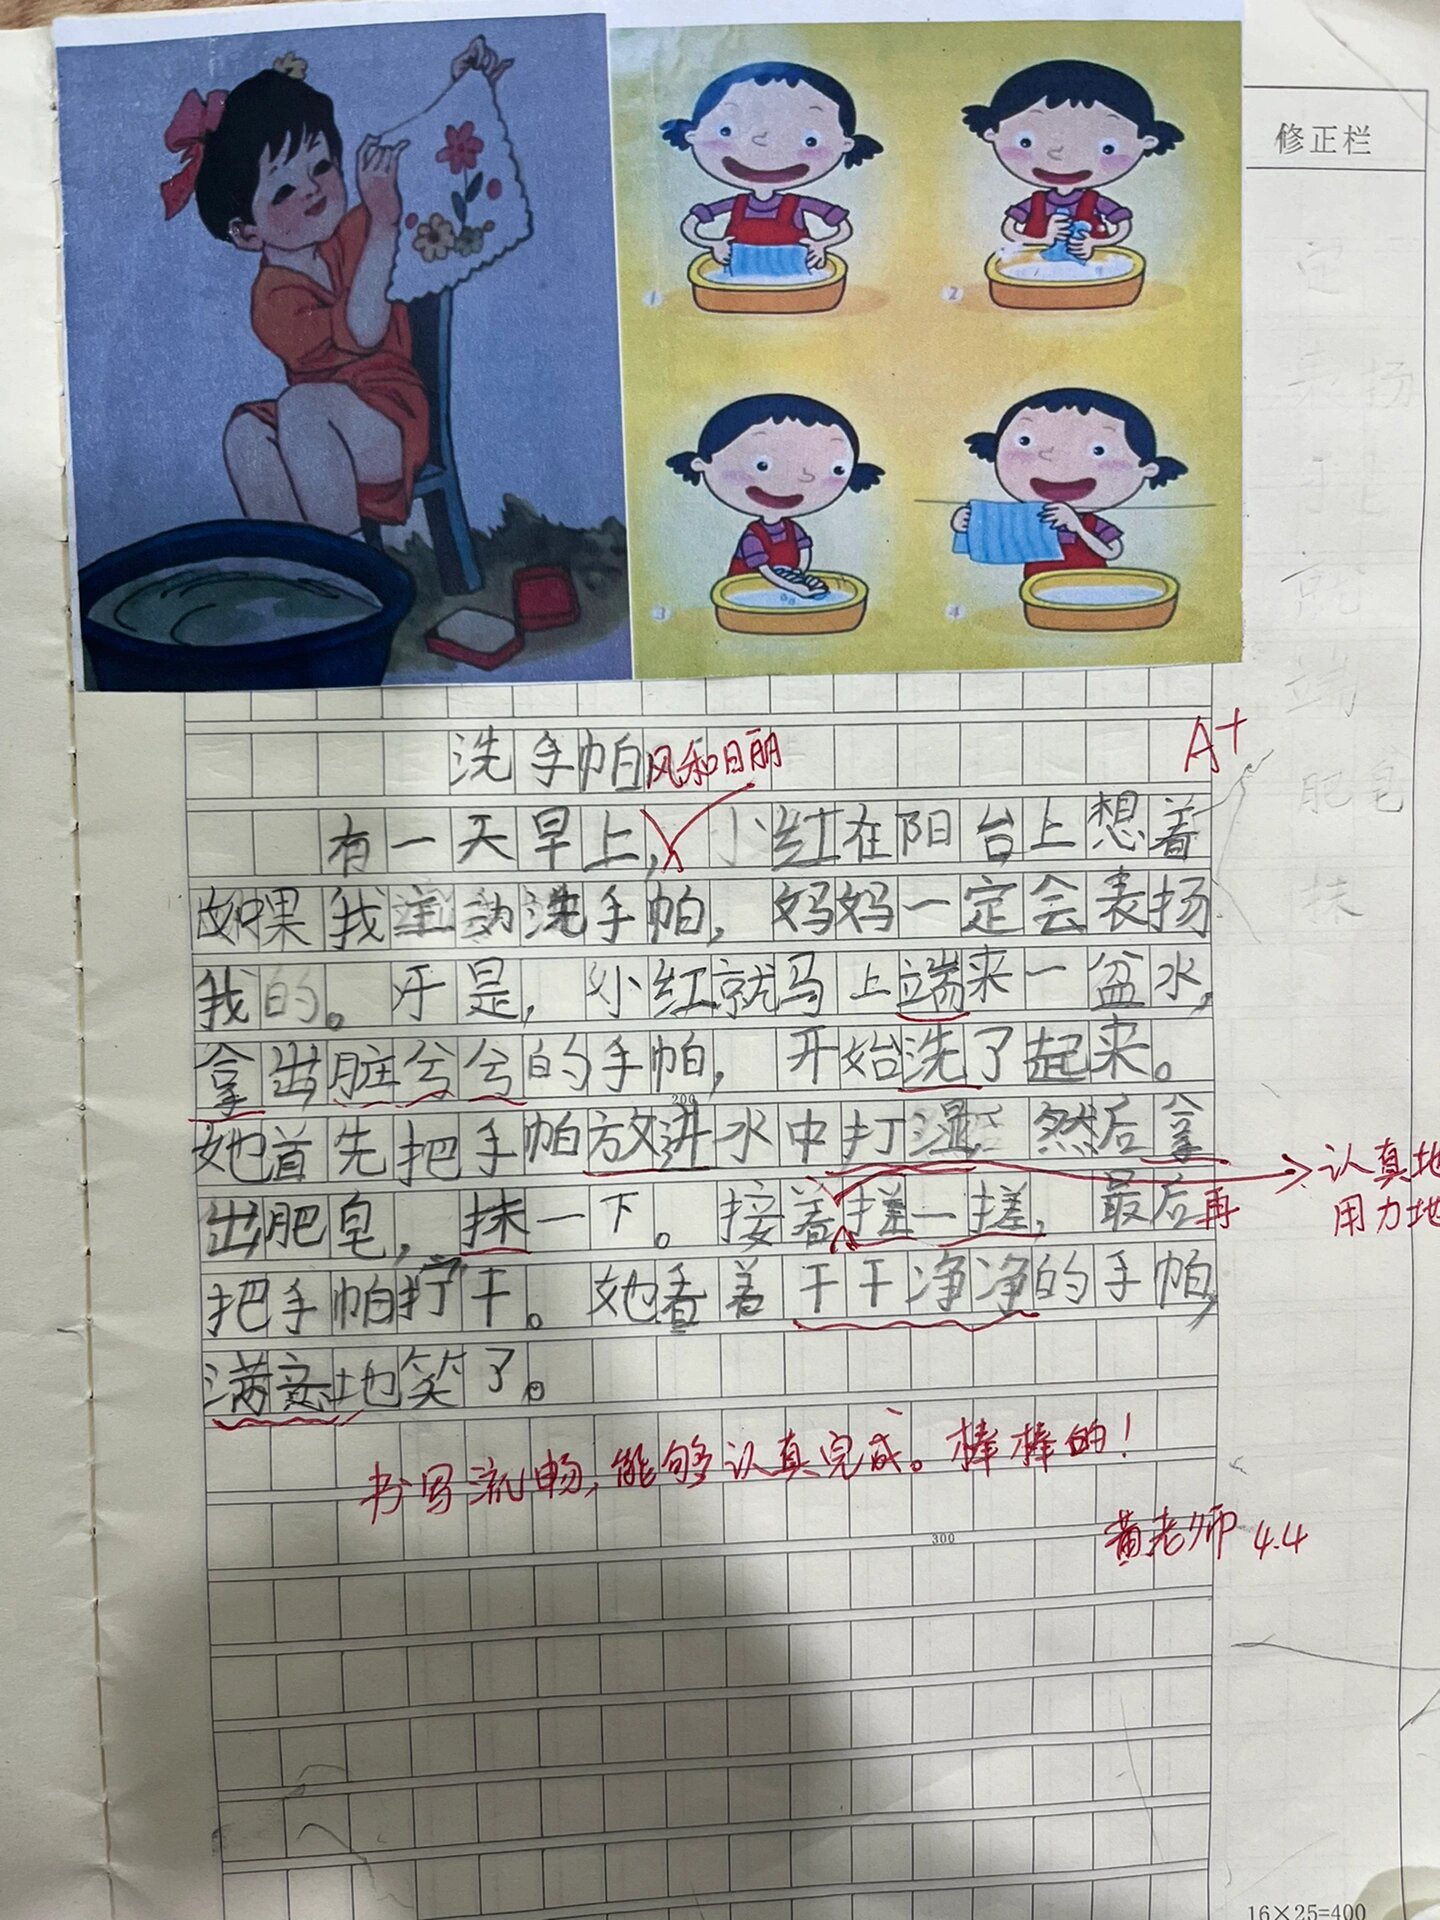 修正栏
1
2
3
4
A+
洗手帕风和日丽
有一天早上，小红在阳台上想着
如果我主动洗手帕，妈妈一定会表扬
我的。于是，小红就马上端来一盆水，
拿出脏兮兮的手帕，开始洗了起来。
200
她首先把手帕放进水中打湿，然后拿
认真地
出肥皂，抹一下。接着搓一搓，最后再
用力地
把手帕拧干。她看着干干净净的手帕，
满意地笑了。
书写流畅，能够认真完成。棒棒的！
300
黄老师 4.4
16×25=400